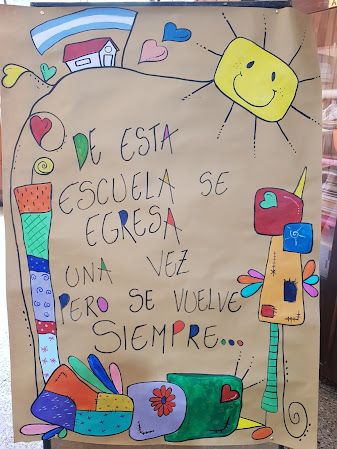 DE ESTA
ESCUELA SE
EGRESA
UNA VEZ
PERO SE VUELVE
SIEMPRE...